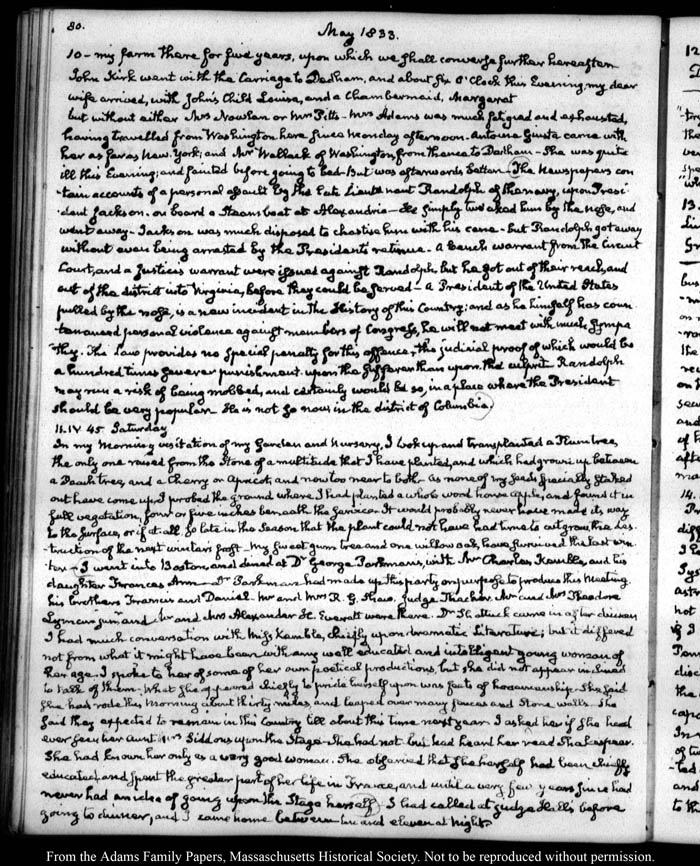 80.
May 1833.
10 - my farm there for five years, upon which we shall converse further hereafter
John Kirk went with the Carriage to Dedham, and about six O'Clock this Evening my dear
wife arrived, with John's Child Louisa, and a Chambermaid, Margaret
but without either Mrs Nowlan or Mrs Pitts - Mrs Adams was much fatigued and exhausted,
having travelled from Washington here since Monday afternoon. Antoine Giusta came with
her as far as New-York; and Mr Wallack of Washington, from thence to Dedham - She was quite
ill this Evening, and fainted before going to bed - but was afterwards better - The Newspapers con
tain accounts of a personal assault by the late Lieutenant Randolph of the navy, upon Presi
dent Jackson. on board a Steam boat at Alexandria - He simply tweaked him by the nose, and
went away - Jackson was much disposed to chastise him with his cane - but Randolph got away
without even being arrested by the President's retinue - A bench warrant from the Circuit
Court, and a Justices warrant were issued against Randolph, but he got out of their reach, and
out of the district into Virginia, before they could be served - A President of the United States
pulled by the nose, is a new incident in the History of this Country; and as he himself has coun
tenanced personal violence against members of Congress, he will not meet with much sympa
thy. The Law provides no special penalty for this offence, the judicial proof of which would be
a hundred times severer punishment upon the sufferer than upon the culprit. Randolph
may run a risk of being mobbed, and certainly would be so, in a place where the President
should be very popular. He is not so now in the district of Columbia.
11. IV 45 Saturday
In my Morning visitation of my Garden and Nursery, I took up and transplanted a Plum tree,
the only one raised from the Stone of a multitude that I have planted, and which had grown up between
a Peach tree, and a Cherry or Apricot, and now too near to both. As none of my seeds specially staked
out have come up, I probed the ground where I had planted a whole horse apple, and found it in
full vegetation, four or five inches beneath the surface. It would probably never have made its way
to the surface, or if at all, so late in the Season that the plant could not have had time to outgrow the des-
truction of the next winter's frost - My sweet gum tree and one willow oak, have survived the last win
ter - I went into Boston, and dined at Dr George Parkman's, with Mr Charles Kemble, and his
daughter Frances Ann - Dr Parkman had made up this party on purpose to produce this meeting.
his brothers Francis and Daniel. Mr and Mrs R. G. Shaw. Judge Thacher Mr and Mrs Theodore
Lyman junr. and Mr and Mrs Alexander H. Everett were there. Dr Shattuck came in after dinner
I had much conversation with Miss Kemble, chiefly upon dramatic Literature; but it differed
not from what it might have been with any well educated and intelligent young woman of
her age. I spoke to her of some of her own poetical productions, but she did not appear inclined
to talk of them - What she appeared chiefly to pride herself upon was feats of horsemanship. She said
she had rode this Morning about thirty miles, and leaped over many fences and Stone walls. She
said they expected to remain in this Country till about this time next year. I asked her if she had
ever seen her Aunt Mrs Siddons upon the Stage - She had not but had heard her read Shakspear.
She had known her only as a very good woman. She observed that she herself had been chiefly
educated, and spent the greater part of her life in France, and until a very few years since had
never had an idea of going upon the Stage herself - I had called at Judge Hall's before
going to dinner, and I came home between ten and eleven at Night.
From the Adams Family Papers, Massachusetts Historical Society. Not to be reproduced without permission.